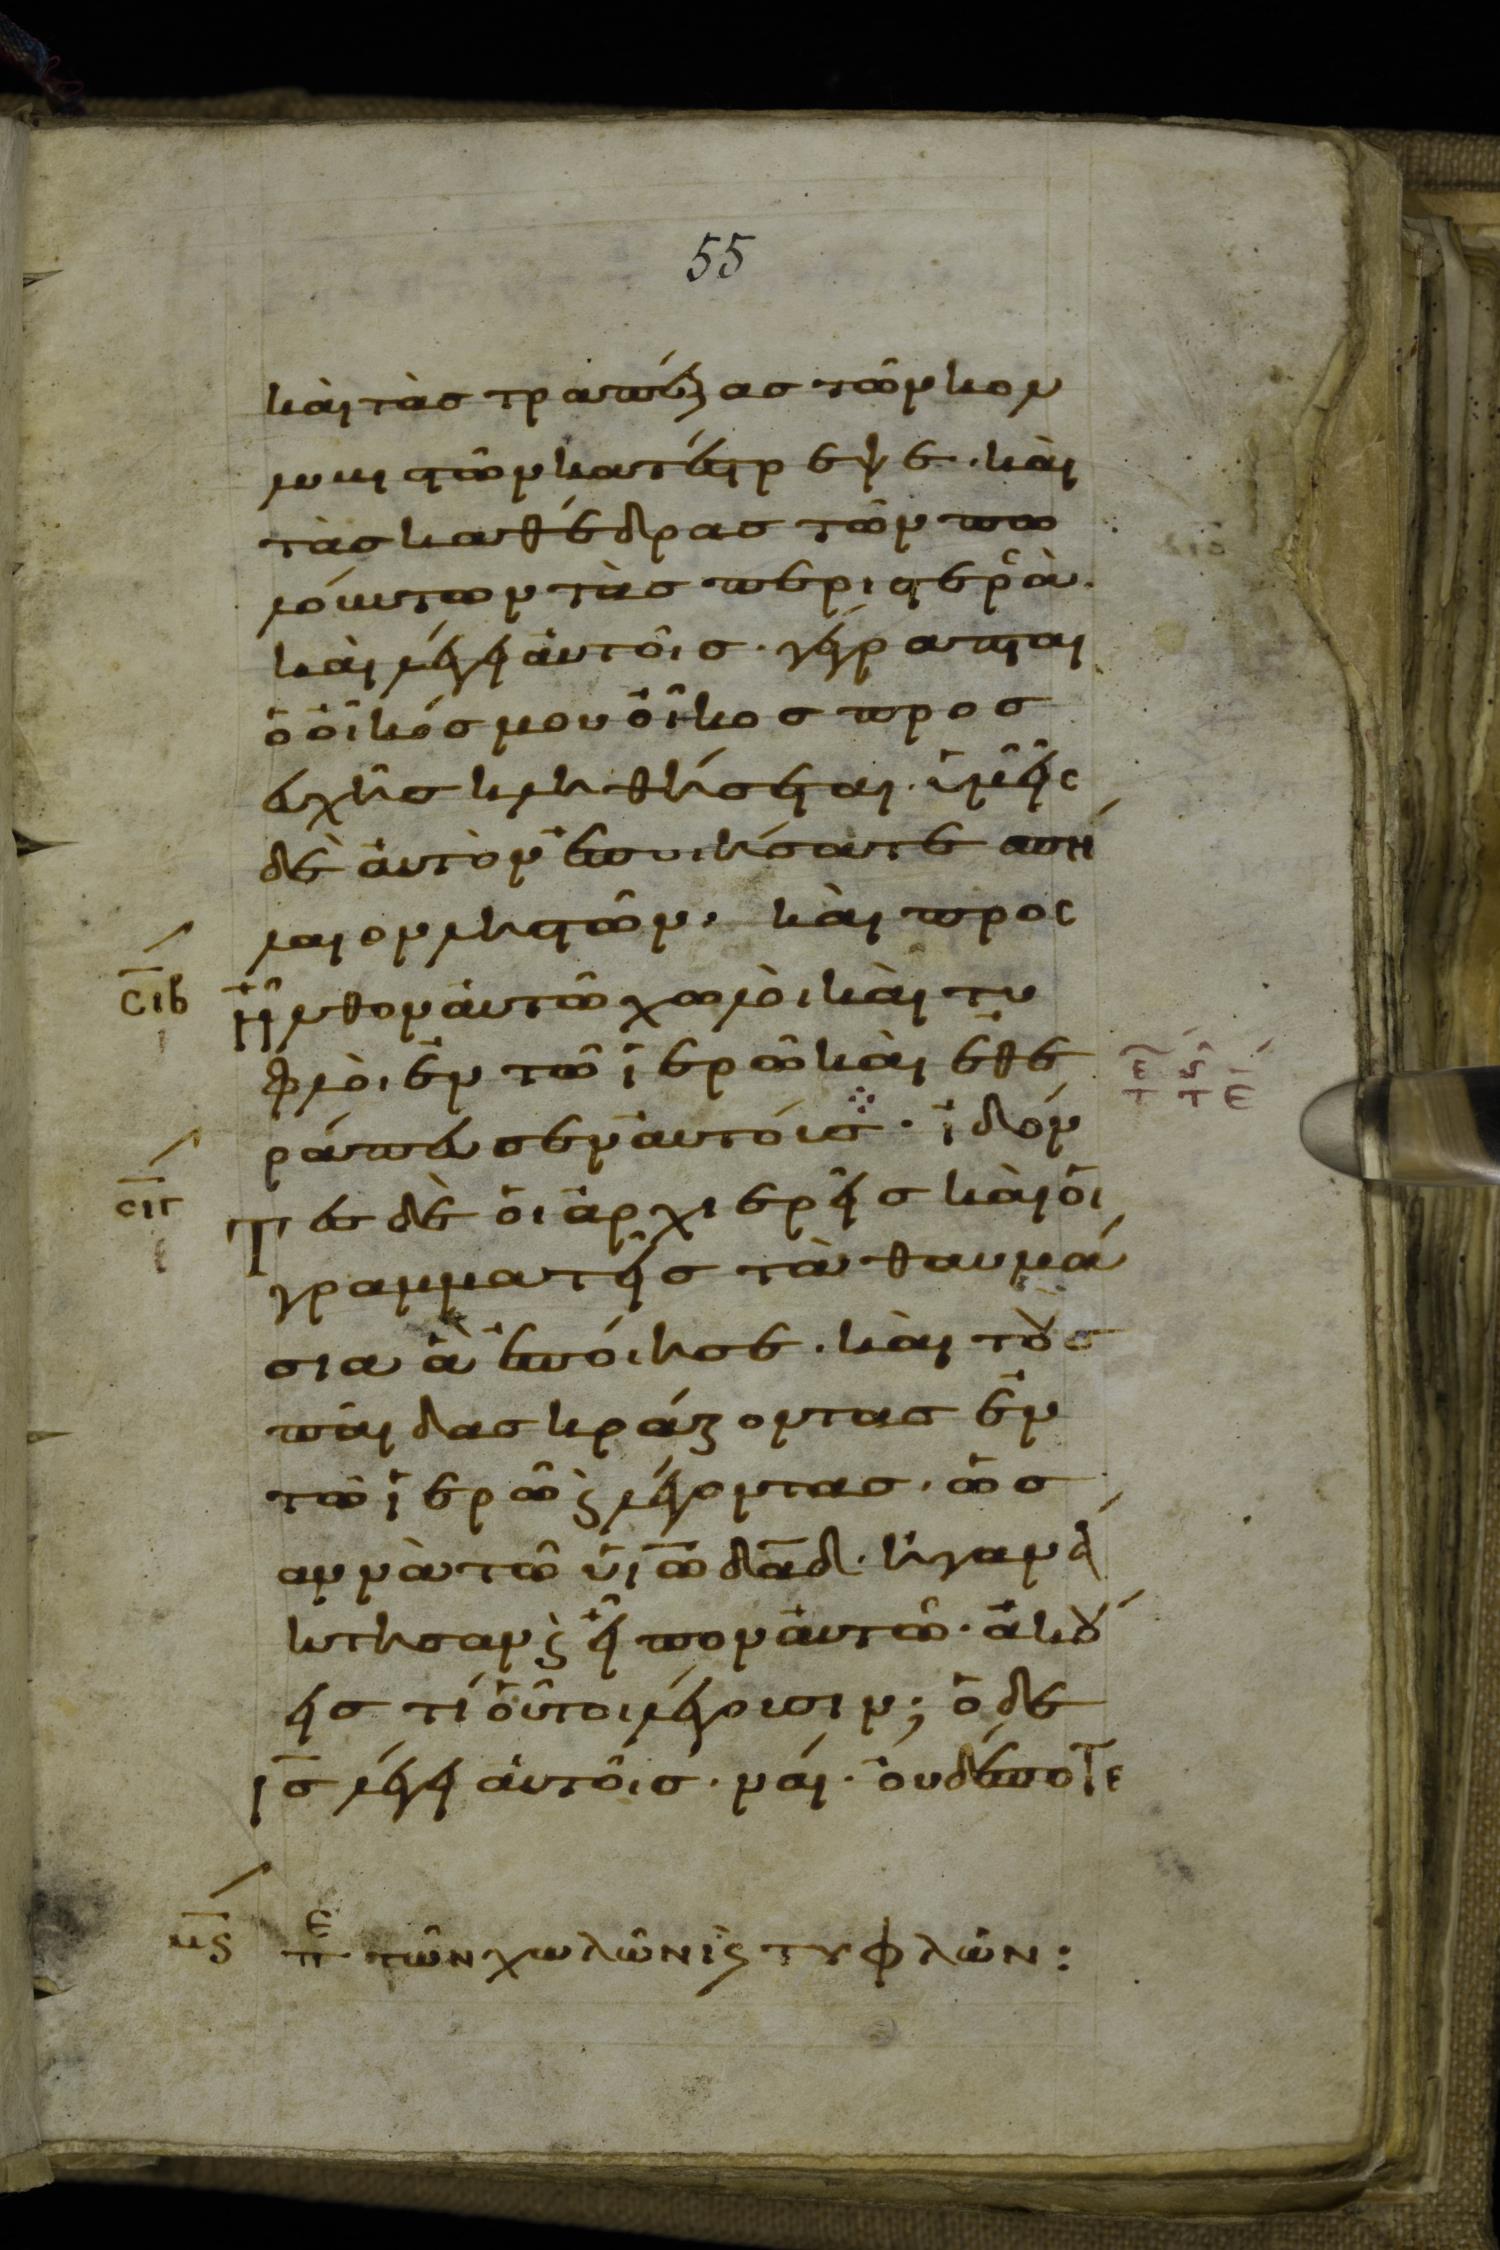 55
καὶ τὰσ τραπέζασ τῶν κολ
λυϊστῶν κατέστρεψε. καὶ
τὰσ καθέδρασ τῶν πω
λούντων τὰσ περιστερὰ.
καὶ λέγει ἀυτοῖσ. γέγραπται
ὁ οἶκόσ μου οἶκοσ προσ
ευχῆσ κληθήσεται. ὑμεῖς
δὲ ἀυτὸν ἐποιήσατε σπή
λαιον ληστῶν. καὶ προς
σιβ
ῆλθον ἀυτῶ χωλοὶ καὶ τυ
φλοὶ ἐν τῶ ἱερῶ καὶ ἐθε
ράπευσεν ἀυτούσ. ἰδόν
σιγ
Τεσ δὲ ὁι ἀρχιερεῖσ καὶ ὁι
γραμματεῖσ τὰ θαυμά
σια ἃ ἐποίησε. καὶ τοὺσ
παῖδασ κράζοντασ ἐν
τῶ ἱερῶ ϗ λέγοντασ. ὡσ
αννὰ τῶ ὑιῶ δαδ. ἠγανά
κτησαν ϗ εἶπον ἀυτῶ. ἀκού
εισ τί οὗτοι λέγουσιν; ὁ δὲ
ισ λέγει ἀυτοῖσ. ναί. ὀυδέποτε
μϛ πε τῶν χωλῶν ϗ τυφλῶν: